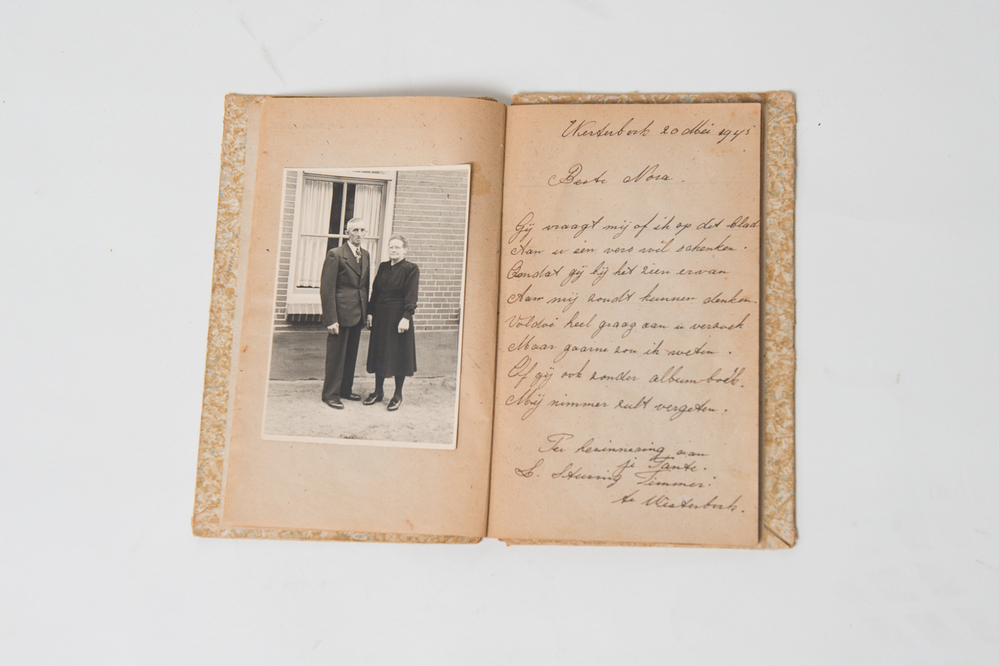 Westerbork 20 Mei 1945
Beste Nora.
Gij vraagt mij of ik op dit blad
Aan u een vers wil schenken.
Omdat gij bij het zien ervan
Aan mij zoudt kunnen denken.
Voldoe heel graag aan u verzoek
Maar gaarne zou ik weten.
Of gij ook zonder albumboek.
Mij nimmer zult vergeten.
Ter herinnering aan
je Tante.
L. Stuuring Timmer
te Westerbork.